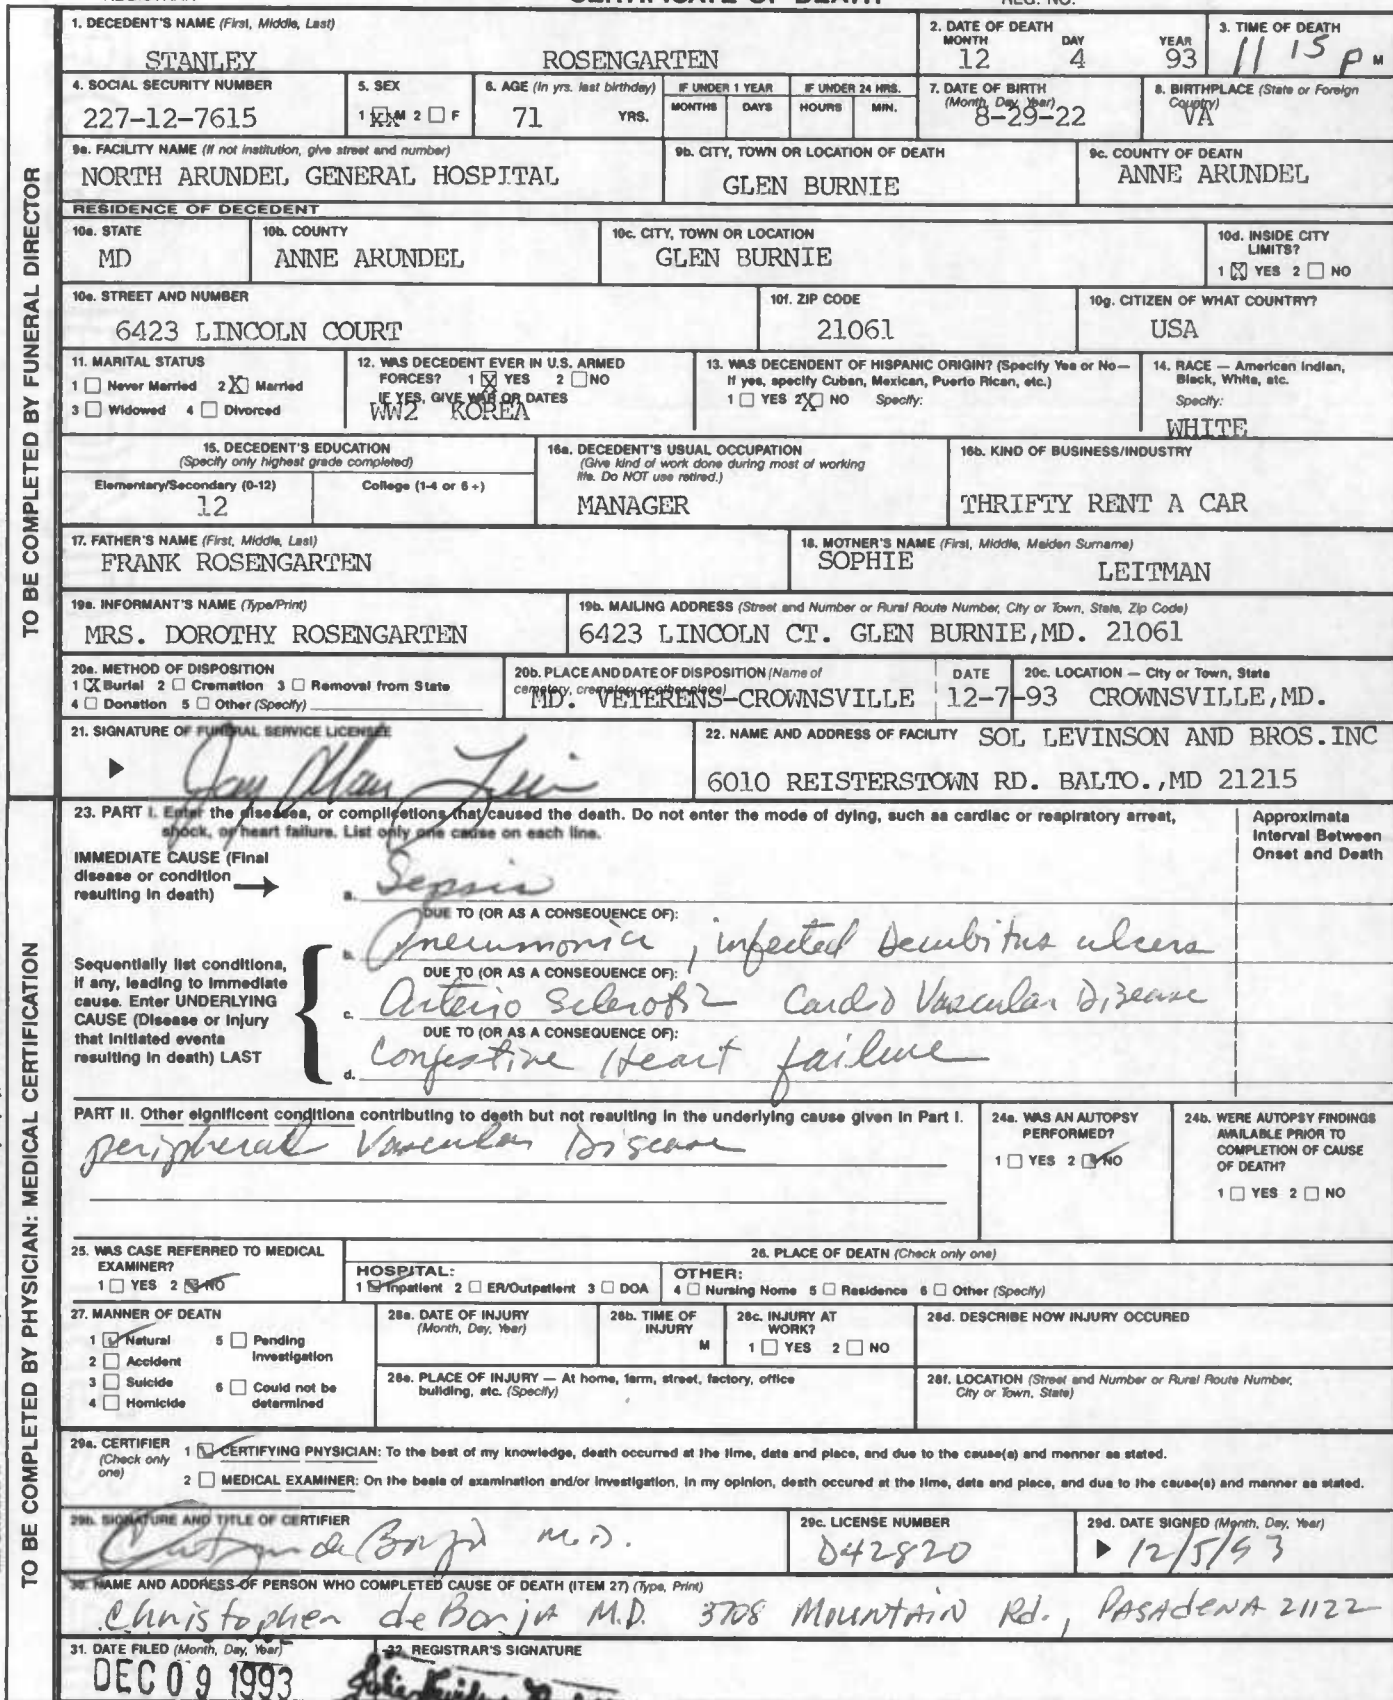 CERTIFICATE OF DEATH
REG. NO.
1. DECEDENT'S NAME (First, Middle, Last)
STANLEY ROSENGARTEN
2. DATE OF DEATH
MONTH DAY YEAR
12 4 93
3. TIME OF DEATH
11 15 P M
4. SOCIAL SECURITY NUMBER
227-12-7615
5. SEX
1 XX M 2 ☐ F
6. AGE (In yrs. last birthday)
71 YRS.
IF UNDER 1 YEAR
MONTHS DAYS
IF UNDER 24 HRS.
HOURS MIN.
7. DATE OF BIRTH
(Month, Day, Year)
8-29-22
8. BIRTHPLACE (State or Foreign
Country)
VA
9a. FACILITY NAME (If not institution, give street and number)
NORTH ARUNDEL GENERAL HOSPITAL
9b. CITY, TOWN OR LOCATION OF DEATH
GLEN BURNIE
9c. COUNTY OF DEATH
ANNE ARUNDEL
RESIDENCE OF DECEDENT
10a. STATE
MD
10b. COUNTY
ANNE ARUNDEL
10c. CITY, TOWN OR LOCATION
GLEN BURNIE
10d. INSIDE CITY
LIMITS?
1 ☒ YES 2 ☐ NO
10e. STREET AND NUMBER
6423 LINCOLN COURT
10f. ZIP CODE
21061
10g. CITIZEN OF WHAT COUNTRY?
USA
11. MARITAL STATUS
1 ☐ Never Married 2 ☒ Married
3 ☐ Widowed 4 ☐ Divorced
12. WAS DECEDENT EVER IN U.S. ARMED
FORCES? 1 ☒ YES 2 ☐ NO
IF YES, GIVE WAR OR DATES
WW2 KOREA
13. WAS DECENDENT OF HISPANIC ORIGIN? (Specify Yes or No—
If yes, specify Cuban, Mexican, Puerto Rican, etc.)
1 ☐ YES 2 ☒ NO Specify:
14. RACE — American Indian,
Black, White, etc.
Specify:
WHITE
15. DECEDENT'S EDUCATION
(Specify only highest grade completed)
Elementary/Secondary (0-12) College (1-4 or 5+)
12
16a. DECEDENT'S USUAL OCCUPATION
(Give kind of work done during most of working
life. Do NOT use retired.)
MANAGER
16b. KIND OF BUSINESS/INDUSTRY
THRIFTY RENT A CAR
17. FATHER'S NAME (First, Middle, Last)
FRANK ROSENGARTEN
18. MOTHER'S NAME (First, Middle, Maiden Surname)
SOPHIE LEITMAN
19a. INFORMANT'S NAME (Type/Print)
MRS. DOROTHY ROSENGARTEN
19b. MAILING ADDRESS (Street and Number or Rural Route Number, City or Town, State, Zip Code)
6423 LINCOLN CT. GLEN BURNIE,MD. 21061
20a. METHOD OF DISPOSITION
1 ☒ Burial 2 ☐ Cremation 3 ☐ Removal from State
4 ☐ Donation 5 ☐ Other (Specify)
20b. PLACE AND DATE OF DISPOSITION (Name of
cemetery, crematory or other place)
MD. VETERENS-CROWNSVILLE
DATE
12-7-93
20c. LOCATION — City or Town, State
CROWNSVILLE,MD.
21. SIGNATURE OF FUNERAL SERVICE LICENSEE
22. NAME AND ADDRESS OF FACILITY SOL LEVINSON AND BROS.INC
6010 REISTERSTOWN RD. BALTO.,MD 21215
TO BE COMPLETED BY FUNERAL DIRECTOR
23. PART I. Enter the diseases, or complications that caused the death. Do not enter the mode of dying, such as cardiac or respiratory arrest,
shock, or heart failure. List only one cause on each line.
Approximate
Interval Between
Onset and Death
IMMEDIATE CAUSE (Final
disease or condition
resulting in death)
a. Sepsis
DUE TO (OR AS A CONSEQUENCE OF):
b. Pneumonia, infected Decubitus ulcers
DUE TO (OR AS A CONSEQUENCE OF):
c. Arterio Sclerotic Cardio Vascular Disease
DUE TO (OR AS A CONSEQUENCE OF):
d. Congestive Heart failure
Sequentially list conditions,
if any, leading to immediate
cause. Enter UNDERLYING
CAUSE (Disease or injury
that initiated events
resulting in death) LAST
PART II. Other significant conditions contributing to death but not resulting in the underlying cause given in Part I.
peripheral Vascular Disease
24a. WAS AN AUTOPSY
PERFORMED?
1 ☐ YES 2 ☑ NO
24b. WERE AUTOPSY FINDINGS
AVAILABLE PRIOR TO
COMPLETION OF CAUSE
OF DEATH?
1 ☐ YES 2 ☐ NO
25. WAS CASE REFERRED TO MEDICAL
EXAMINER?
1 ☐ YES 2 ☑ NO
26. PLACE OF DEATH (Check only one)
HOSPITAL:
1 ☑ Inpatient 2 ☐ ER/Outpatient 3 ☐ DOA
OTHER:
4 ☐ Nursing Home 5 ☐ Residence 6 ☐ Other (Specify)
27. MANNER OF DEATH
1 ☑ Natural 5 ☐ Pending
Investigation
2 ☐ Accident
3 ☐ Suicide 6 ☐ Could not be
determined
4 ☐ Homicide
28a. DATE OF INJURY
(Month, Day, Year)
28b. TIME OF
INJURY
M
28c. INJURY AT
WORK?
1 ☐ YES 2 ☐ NO
28d. DESCRIBE HOW INJURY OCCURED
28e. PLACE OF INJURY — At home, farm, street, factory, office
building, etc. (Specify)
28f. LOCATION (Street and Number or Rural Route Number,
City or Town, State)
29a. CERTIFIER
(Check only
one)
1 ☑ CERTIFYING PHYSICIAN: To the best of my knowledge, death occurred at the time, date and place, and due to the cause(s) and manner as stated.
2 ☐ MEDICAL EXAMINER: On the basis of examination and/or investigation, in my opinion, death occured at the time, date and place, and due to the cause(s) and manner as stated.
29b. SIGNATURE AND TITLE OF CERTIFIER
de Borja M.D.
29c. LICENSE NUMBER
D42820
29d. DATE SIGNED (Month, Day, Year)
12/5/93
30. NAME AND ADDRESS OF PERSON WHO COMPLETED CAUSE OF DEATH (ITEM 27) (Type, Print)
Christopher de Borja M.D. 3708 Mountain Rd., PASAdENA 21122
TO BE COMPLETED BY PHYSICIAN: MEDICAL CERTIFICATION
31. DATE FILED (Month, Day, Year)
DEC 09 1993
32. REGISTRAR'S SIGNATURE